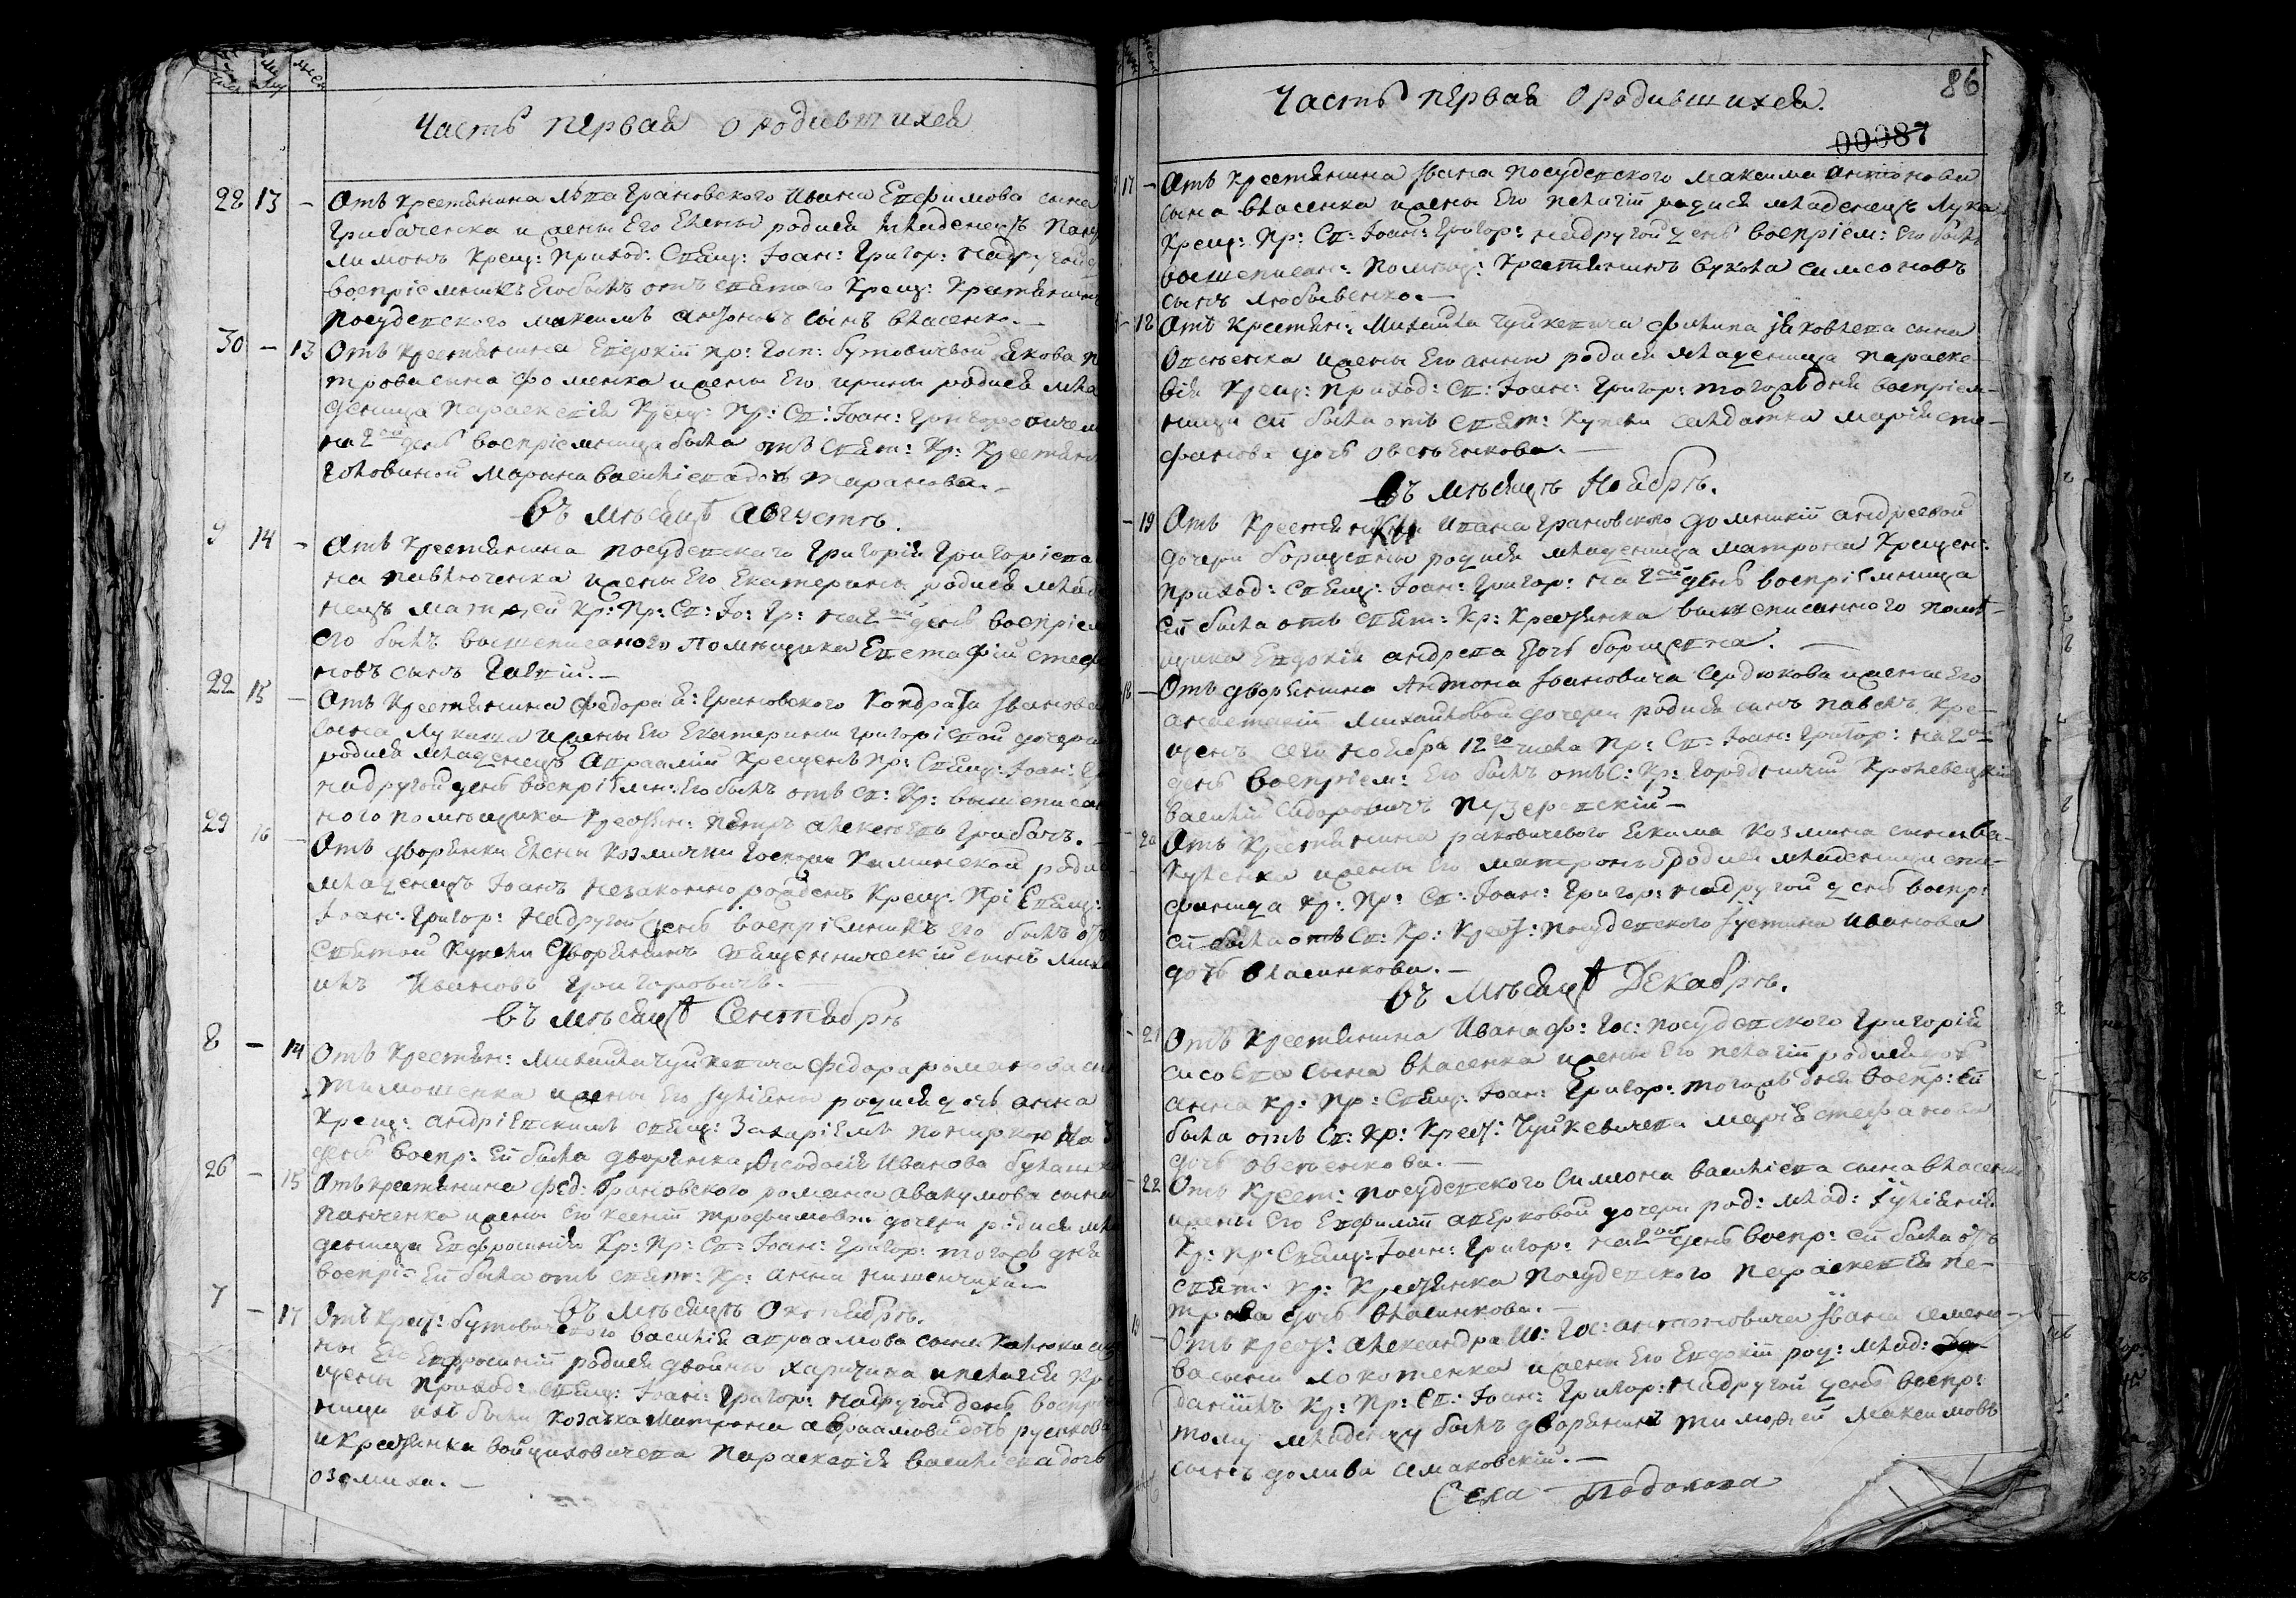 Часть первая о родившихся
22 13 – Отъ крестянина Льва Грановского Ивана Евфимова сына
Грибаченка и жены Его Елены родися младенецъ Пант
лимонъ Крещ: Приход: Свящ: Іоан: Григор: на другой д
воспріемникъ Его былъ отъ святого Крещ: Крестянинъ
Посудевского Максимъ Антоновъ сынъ Власенко. –
30 – 13 Отъ Крестянина Евдокіи кр: Госп: Бутовичевой Якова П
трова сына Фоменка и жены Его Ирины родися мла
деница Параскевія Крещ: Пр: Св: Іоан: Григоровичем
на 2ой день воспріемница была отъ Свят: Кр: Крестянк
Головиной Марина Василіева дочь Таранова. –
Въ мѣсяцѣ Августѣ.
9 14 – Отъ Крестянина Посудевского Григорія Григоріева
на Павлюченка и жены Его Екатерины родися млад
нецъ Матѳей Кр: Пр: Св: Іо: Гр: на 2ой день воспріем
его былъ вышеписаного помѣщика Евстафій Стеф
новъ сынъ
22 15 – Отъ Крестянина Федора Я: Грановского Кондрата Іванова
сына и жены Его Екатерины Григоріевой дочери
родися младенецъ Авраамій Крещенъ Пр: Свящ: Іоан: Гр
на другой день воспріемн: Его былъ отъ св: Кр: вышеписан
ного помѣщика Крестян: Петръ Алексѣевъ Грибачъ.
29 16 – Отъ дворянки Елены Козмички Госпожи Каминской роди
младенецъ Іоанъ незаконно рожденъ Крещ: Прі Свящ:
Іоан: Григор: на другой день воспріемникъ Его былъ отъ
святой Купели Дворянинъ священническій сынъ Миха
илъ Ивановъ Григоровичъ. –
Въ мѣсяцѣ Сентябрѣ
8 – 14 Отъ Крестян: Михайла Чуйкевича Федора Романова сы
Тимошенка и жены Его Іуліяны родися дочь Анна
Крещ: Андріевскимъ свящ: Захаріемъ на
день воспр: Ей была дворянка Ѳеодосія Иванова
26 – 15 Отъ крестянина Фед: Грановского Романа Авакумова сына
Панченка и жены Его Ксеніи Трофимовой дочери родися мла
деница Евфросинія Кр: Пр: Св: Іоан: Григор: тогожъ дня
воспрі: Ей была отъ свят: Кр: Анна
Въ мѣсяцѣ Октябрѣ.
7 – 17 Отъ крест: Бутовичевого Василія Авраамова сына и же
ны Его Евфросиніи родися двойны Харитина и Пелагія Кре
щены Приход: Свящ: Іоан: Григор: на другой день воспріе
ници имъ были козачка Матрона Авраамова дочь
и Крестянка Войцеховичева Параскевія Василіева дочь
озомиха. –
Часть первая о родившихся. 86
00087
17 – Отъ Крестянина Ивана Посудевского Максима Антонова
сына Власенка и жены Его Пелагіи родися младенецъ Лука
Крещ: Пр: Св: Іоан: Григор: на другой день воспріем: Его былъ
вышеписан: Помѣщ: Крестянинъ Вукола Симеоновъ
сынъ Любывенко. –
– 18 Отъ Крестян: Михайла Чуйкевича Филипа Іаковлева сына
Овсѣенка и жены Его Анны родися младеница Параске-
вія Крещ: Приход: Св: Іоан: Григор: тогожъ дня воспріем-
ница ей была отъ свят: Купели салдатка Марія Сте-
фанова дочь Овсѣенкова. –
Въ мѣсяцѣ Ноябрѣ.
– 19 Отъ Крестянки Ивана Грановского Домникіи Андреевой
дочери Борщевны родися младеница Матрона Крещен:
Приход: Свящ: Іоан: Григор: на 2ой день воспріемница
ей была отъ свят: Кр: Крестянка вышеписанного помѣ-
щика Евдокія Андреева дочь Борщевна. –
18 – Отъ дворянина Антона Івановича Сердюкова и жены Его
Анастасіи Михайловой дочери родися сынъ Павелъ Кре-
щенъ сего ноября 12го числа Пр: Св: Іоан: Григор: на 2ой
день воспріем: Его былъ отъ С: Кр: Городничій Кролевецкій
Василій Сидоровичъ Пузеревскій –
– 20 Отъ Крестянина Раковичевого Якима Козмина сына Ва-
куленка и жены Его Матроны родися младеница Сте-
фанида Кр: Пр: Св: Іоан: Григор: на другой день воспр:
ей была отъ Св: Кр: Крест: Посудевского Іустина Иванова
дочь Власенкова. –
Въ мѣсяцѣ Декабрѣ.
– 21 Отъ Крестянина Ивана Ф: Гос: Посудевского Григорія
Сисоева сына Власенка и жены Его Пелагіи родися дочь
Анна Кр: Пр: Свящ: Іоан: Григор: тогожъ дня воспр: Ей
была отъ Св: Кр: Крест: Чуйкевичева Марія Стефанова
дочь Овсѣенкова. –
– 22 Отъ Крест: Посудевского Симиона Василіева сына Власенка
и жены Его Евфиміи Аверковой дочери род: млад: Іуліянія
Кр: Пр: Свящ: Іоан: Григор: на 2ой день воспр: ей была отъ
свят: Кр: Крестянка Посудевского Параскевія Пе-
трова дочь Власенкова. –
19 – Отъ Крест: Александра Ш: Гос: Антоновича Івана Семено-
ва сына Локотенка и жены Его Евдокіи род: млад:
Даніилъ Кр: Пр: Св: Іоан: Григор: на другой день воспр:
тому младенцу былъ дворянинъ Тимоѳей Максимовъ
сынъ Долива Смаковскій. –
Села